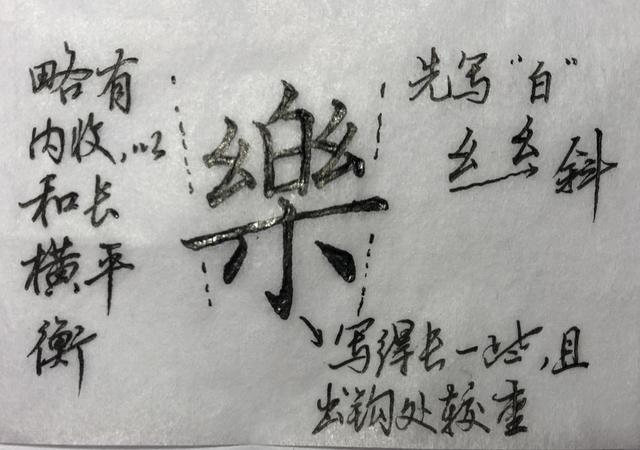 略有
内收,以
和长
横平
衡
樂
先写“白”
幺幺斜
丶写得长一些,且
出钩处较重